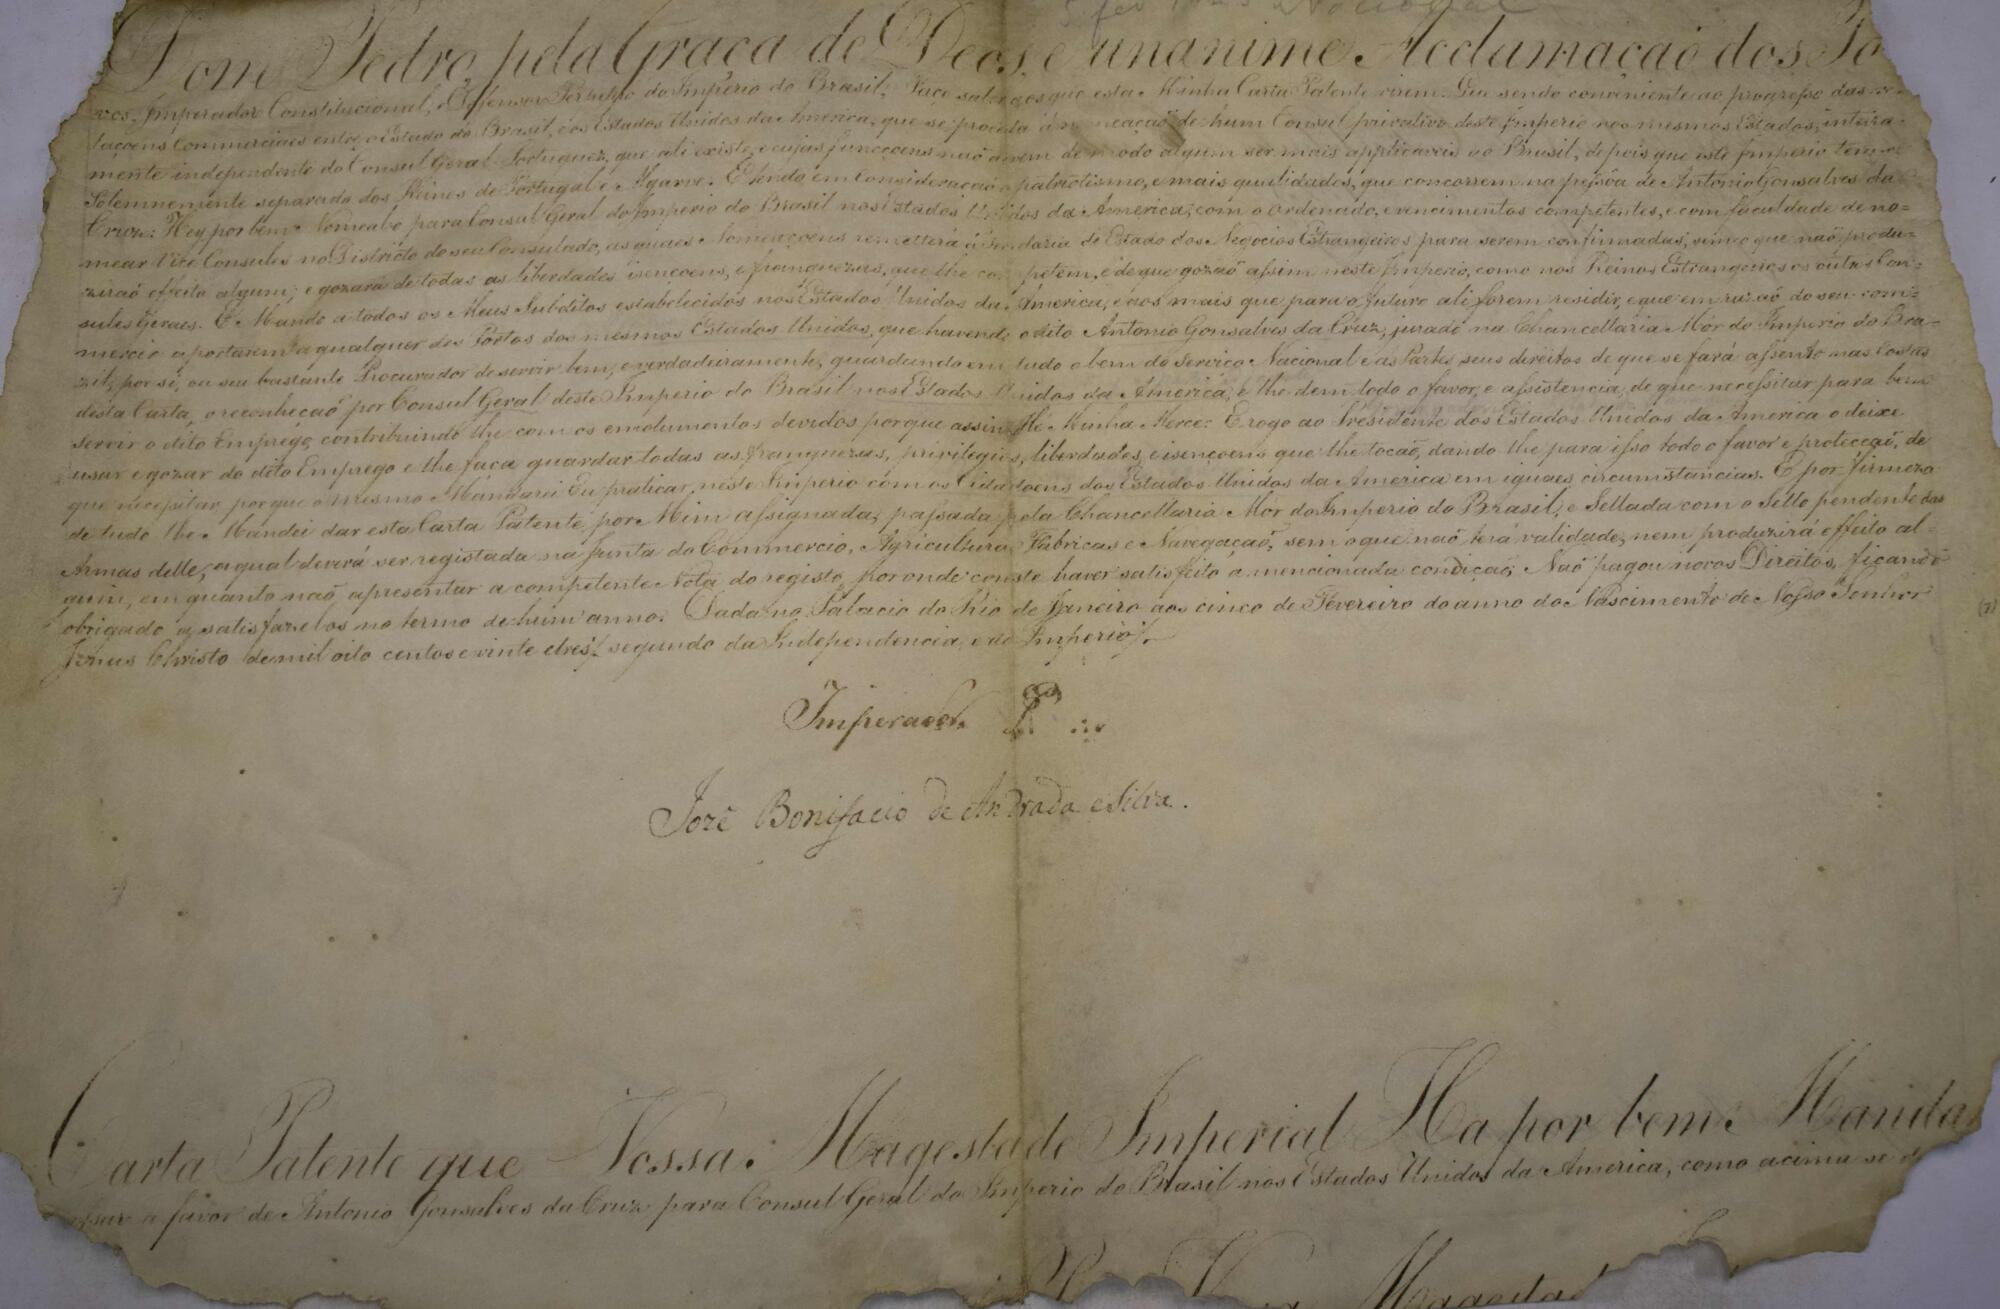 Nacional
Dom Pedro, pela Graça de Deos, e unanime Acclamaçaõ dos Po
vos, Imperador Constitucional, e Defensor Perpetuo do Imperio do Brasil, Faço saber aos que esta Minha Carta Patente virem: Que sendo conveniente ao progresso das re-
laçoens Commerciaes entre o Estado do Brasil, e os Estados Unidos da America, que se proceda á nomeaçaõ de hum Consul privativo deste Imperio nos mesmos Estados, inteira-
mente independente do Consul Geral Portuguez, que ali existe, e cujas funcçoens naõ devem de modo algum ser mais applicaveis ao Brasil, depois que este Imperio
Solemnemente separado dos Reinos de Portugal e Algarve: E tendo em consideraçaõ o patriotismo, e mais qualidades, que concorrem na pessôa de Antonio Gonsalves da
Cruz: Hey por bem Nomealo para Consul Geral do Imperio do Brasil nos Estados Unidos da America, com o ordenado, e vencimentos competentes, e com faculdade de no=
mear Vice Consules no Districto do seu Consulado, as quaes Nomeaçoens remetterá á Secretaria de Estado dos Negocios Estrangeiros para serem confirmadas, sem o que naõ produ=
ziraõ effeito algum; e gozará de todas as liberdades isençoens, e franquezas, que lhe competem, e de que gozaõ assim neste Imperio, como nos Reinos Estrangeiros os outros Con=
sules Geraes. E Mando a todos os Meus Subditos estabelecidos nos Estados Unidos da America, e aos mais que para o futuro ali forem residir, e que em razaõ do seu com=
mercio aportarem a qualquer dos Portos dos mesmos Estados Unidos, que havendo o dito Antonio Gonsalves da Cruz, jurado na Chancellaria Mór do Imperio do Bra=
zil, por si, ou seu bastante Procurador de servir bem, e verdadeiramente, guardando em tudo o bem do Serviço Nacional e as Partes seus direitos de que se fará assento nas Costas
desta Carta, o reconheçaõ por Consul Geral deste Imperio do Brasil nos Estados Unidos da America, e lhe dem todo o favor, e assistencia, de que necessitar para bem
servir o dito Emprego, contribuindo lhe com os emolumentos devidos porque assim He Minha Merce: E rogo ao Presidente dos Estados Unidos da America o deixe
usar e gozar do dito Emprego e lhe faça guardar todas as franquezas, privilegios, liberdades, e isençoens que lhe tocaõ, dando lhe para isso todo o favor e protecçaõ, de
que necessitar, porque o mesmo Mandarei Eu praticar, neste Imperio com os Cidadoens dos Estados Unidos da America em iguaes circumstancias. E por firmeza
de tudo lhe Mandei dar esta Carta Patente por Mim assignada, passada pela Chancellaria Mór do Imperio do Brasil, e Sellada com o Sello pendente das
Armas delle, a qual deverá ser registada na Junta do Commercio, Agricultura, Fabricas e Navegaçaõ, sem o que naõ terá validade, nem produzirá effeito al=
gum, em quanto naõ apresentar a competente Nota do registo, por onde conste haver satisfeito a mencionada condiçaõ, Naõ pagou novos Direitos, ficando
obrigado a satisfazelos no termo de hum anno. Dada no Palacio do Rio de Janeiro aos cinco de Fevereiro do anno do Nascimento de Nosso Senhor
Jezus Christo de mil oito centos e vinte e tres, segundo da Independencia, e do Imperio.
Imperador P
Jozé Bonifacio de Andrada e Silva.
Carta Patente que Vossa Magestade Imperial Ha por bem Manda
passar a favor de Antonio Gonsalves da Cruz para Consul Geral do Imperio do Brasil nos Estados Unidos da America, como acima se
Magestad